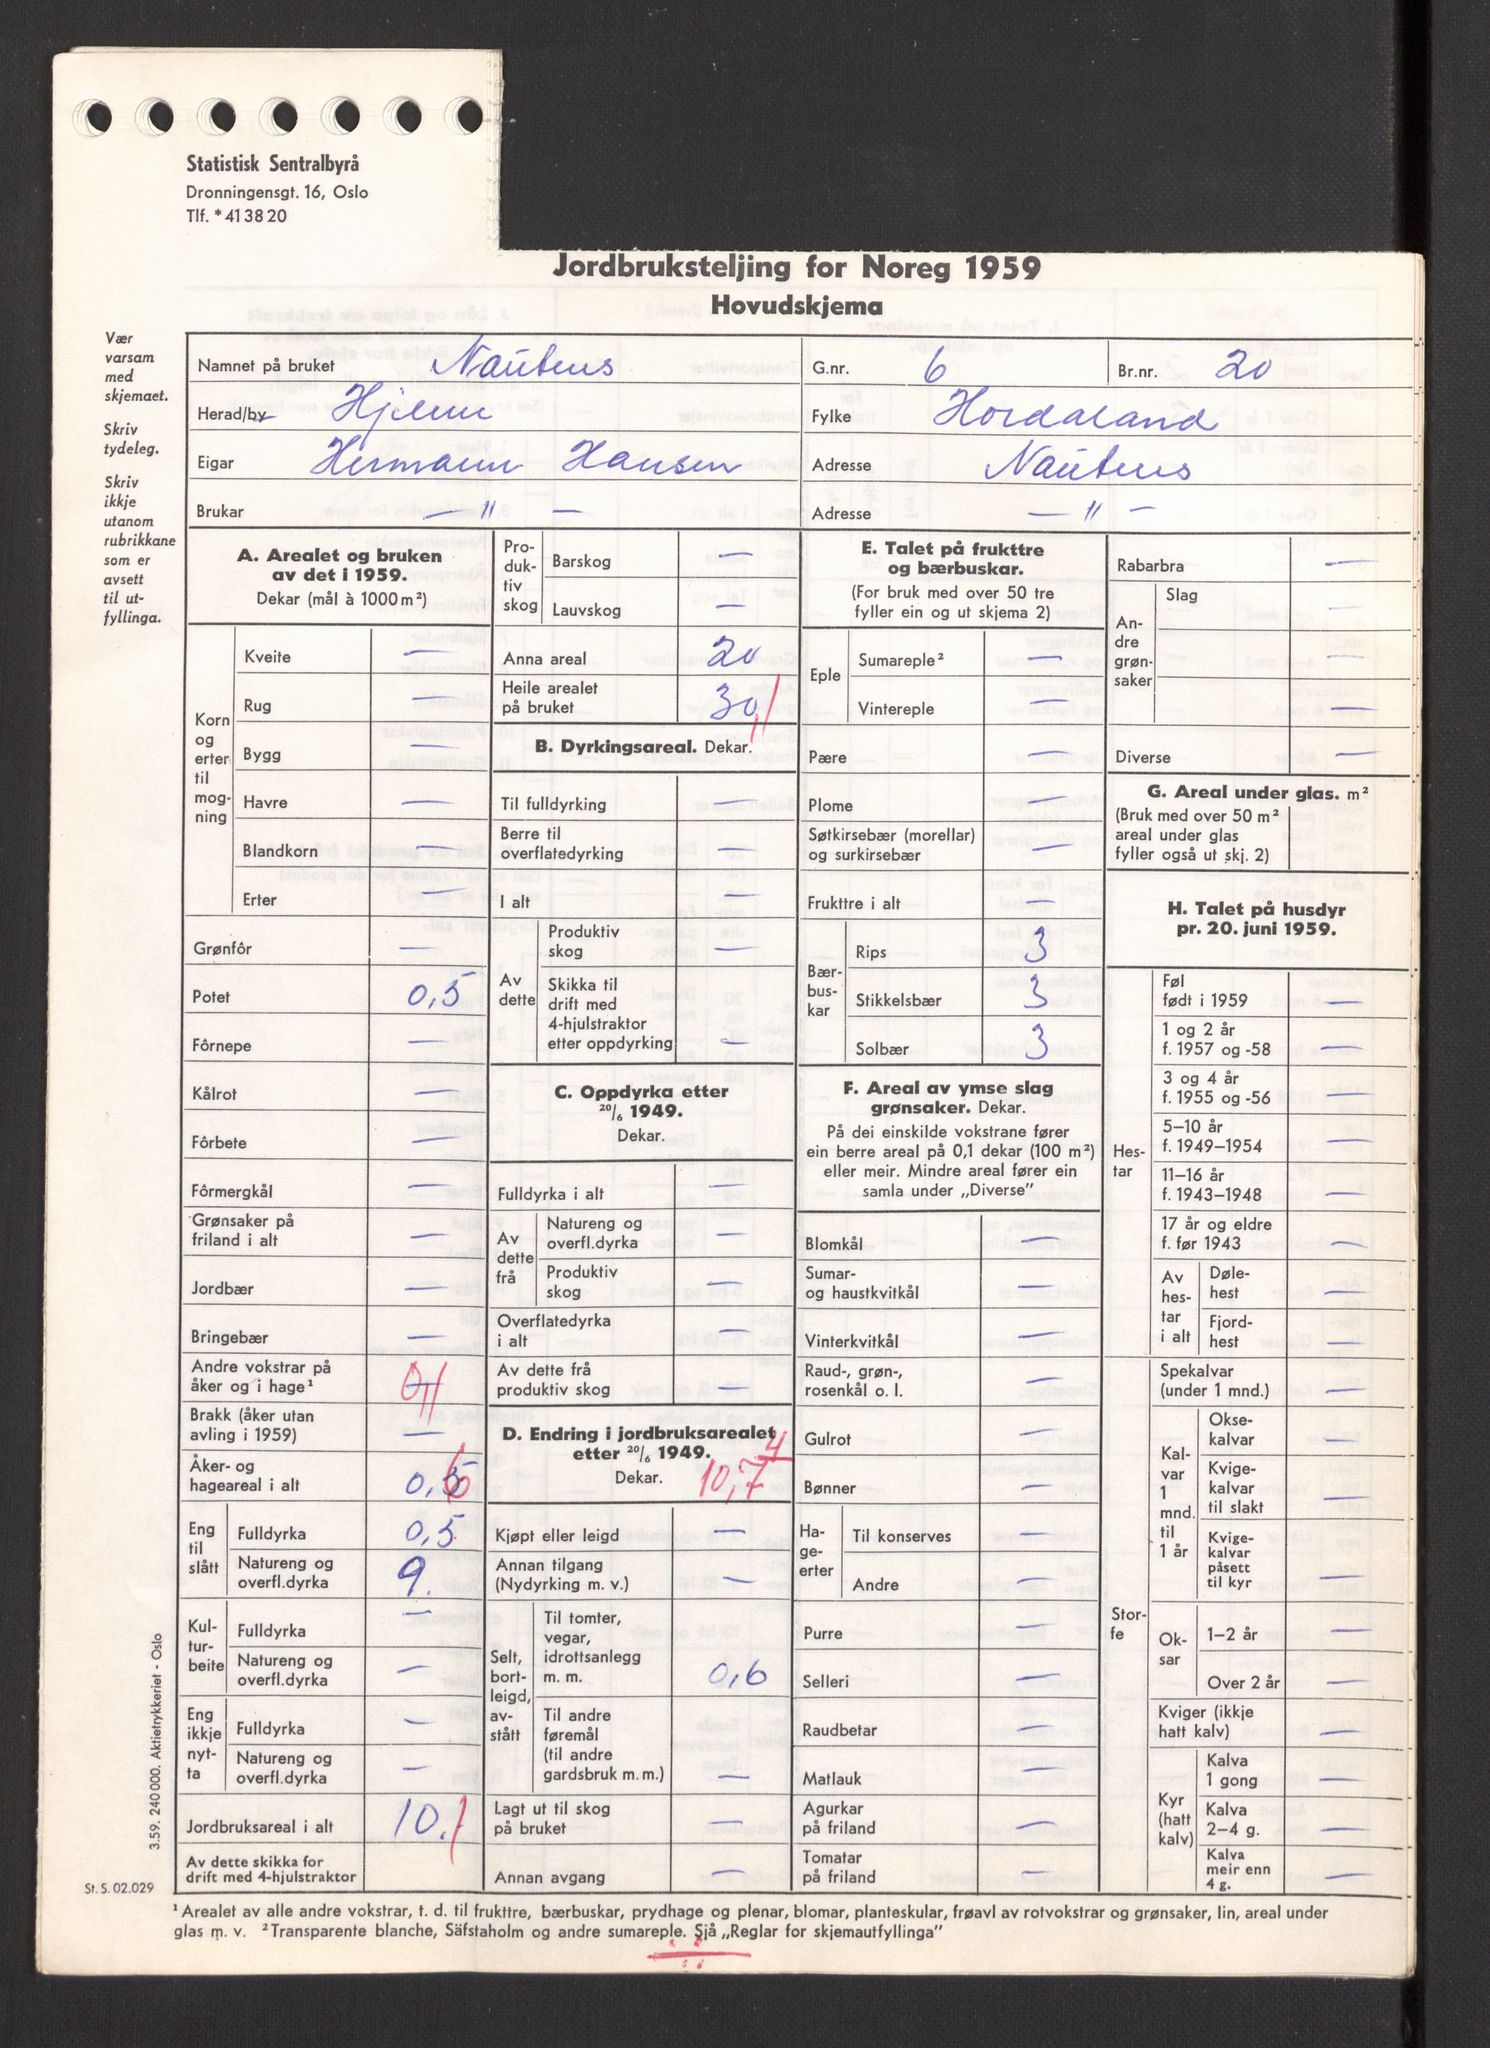 Statistisk Sentralbyrå
Dronningensgt. 16, Oslo
Tlf. * 41 38 20
Jordbruksteljing for Noreg 1959
Hovudskjema
Vær
varsam
med
skjemaet.
Skriv
tydeleg.
Skriv
ikkje
utanom
rubrikkane
som er
avsett
til ut-
fyllinga.
Namnet på bruket Nautnes G.nr. 6 Br.nr. 20
Herad/by Hjelme Fylke Hordaland
Eigar Hermann Hansen Adresse Nautnes
Brukar — " — Adresse — " —
A. Arealet og bruken
av det i 1959.
Dekar (mål à 1000 m²)
Korn
og
erter
til
mog-
ning
Kveite —
Rug —
Bygg —
Havre —
Blandkorn —
Erter —
Grønfôr —
Potet 0,5
Fôrnepe —
Kålrot —
Fôrbete —
Fôrmergkål —
Grønsaker på
friland i alt —
Jordbær —
Bringebær —
Andre vokstrar på
åker og i hage¹ —
Brakk (åker utan
avling i 1959) —
Åker- og
hageareal i alt 0,5 6
Eng
til
slått
Fulldyrka 0,5
Natureng og
overfl.dyrka 9.
Kul-
tur-
beite
Fulldyrka —
Natureng og
overfl.dyrka —
Eng
ikkje
nyt-
ta
Fulldyrka —
Natureng og
overfl.dyrka —
Jordbruksareal i alt 10.1
Av dette skikka for
drift med 4-hjulstraktor
Pro-
duk-
tiv
skog
Barskog —
Lauvskog —
Anna areal 20
Heile arealet
på bruket 30,1
B. Dyrkingsareal. Dekar.
Til fulldyrking —
Berre til
overflatedyrking —
I alt —
Av
dette
Produktiv
skog —
Skikka til
drift med
4-hjulstraktor
etter oppdyrking —
C. Oppdyrka etter
20/6 1949.
Dekar.
Fulldyrka i alt —
Av
dette
frå
Natureng og
overfl.dyrka —
Produktiv
skog —
Overflatedyrka
i alt —
Av dette frå
produktiv skog —
D. Endring i jordbruksarealet
etter 20/6 1949.
Dekar. 10,7
Kjøpt eller leigd —
Annan tilgang
(Nydyrking m. v.) —
Selt,
bort-
leigd,
av-
stått
Til tomter,
vegar,
idrottsanlegg
m. m. 0,6
Til andre
føremål
(til andre
gardsbruk m. m.) —
Lagt ut til skog
på bruket —
Annan avgang —
E. Talet på frukttre
og bærbuskar.
(For bruk med over 50 tre
fyller ein og ut skjema 2)
Eple
Sumareple² —
Vintereple —
Pære —
Plome —
Søtkirsebær (morellar)
og surkirsebær —
Frukttre i alt —
Bær-
bus-
kar
Rips 3
Stikkelsbær 3
Solbær 3
F. Areal av ymse slag
grønsaker. Dekar.
På dei einskilde vokstrane fører
ein berre areal på 0,1 dekar (100 m²)
eller meir. Mindre areal fører ein
samla under „Diverse”
Blomkål —
Sumar-
og haustkvitkål —
Vinterkvitkål —
Raud-, grøn-,
rosenkål o. l. —
Gulrot —
Bønner —
Ha-
ge-
erter
Til konserves —
Andre —
Purre —
Selleri —
Raudbetar —
Matlauk —
Agurkar
på friland —
Tomatar
på friland —
Rabarbra —
An-
dre
grøn-
saker
Slag —
—
—
Diverse —
G. Areal under glas. m²
(Bruk med over 50 m²
areal under glas
fyller også ut skj. 2)
H. Talet på husdyr
pr. 20. juni 1959.
Hes-
tar
Føl
født i 1959 —
1 og 2 år
f. 1957 og -58 —
3 og 4 år
f. 1955 og -56 —
5–10 år
f. 1949–1954 —
11–16 år
f. 1943–1948 —
17 år og eldre
f. før 1943 —
Av
hes-
tar
i alt
Døle-
hest —
Fjord-
hest —
Stor-
fe
Spekalvar
(under 1 mnd.) —
Kal-
var
1
mnd.
til
1 år
Okse-
kalvar —
Kvige-
kalvar
til slakt —
Kvige-
kalvar
påsett
til kyr —
Ok-
sar
1–2 år —
Over 2 år —
Kviger (ikkje
hatt kalv) —
Kyr
(hatt
kalv)
Kalva
1 gong —
Kalva
2–4 g. —
Kalva
meir enn
4 g. —
3.59. 240 000. Aktietrykkeriet - Oslo
St. S. 02.029
¹ Arealet av alle andre vokstrar, t. d. til frukttre, bærbuskar, prydhage og plenar, blomar, planteskular, frøavl av rotvokstrar og grønsaker, lin, areal under
glas m. v. ² Transparente blanche, Säfstaholm og andre sumareple. Sjå „Reglar for skjemautfyllinga”